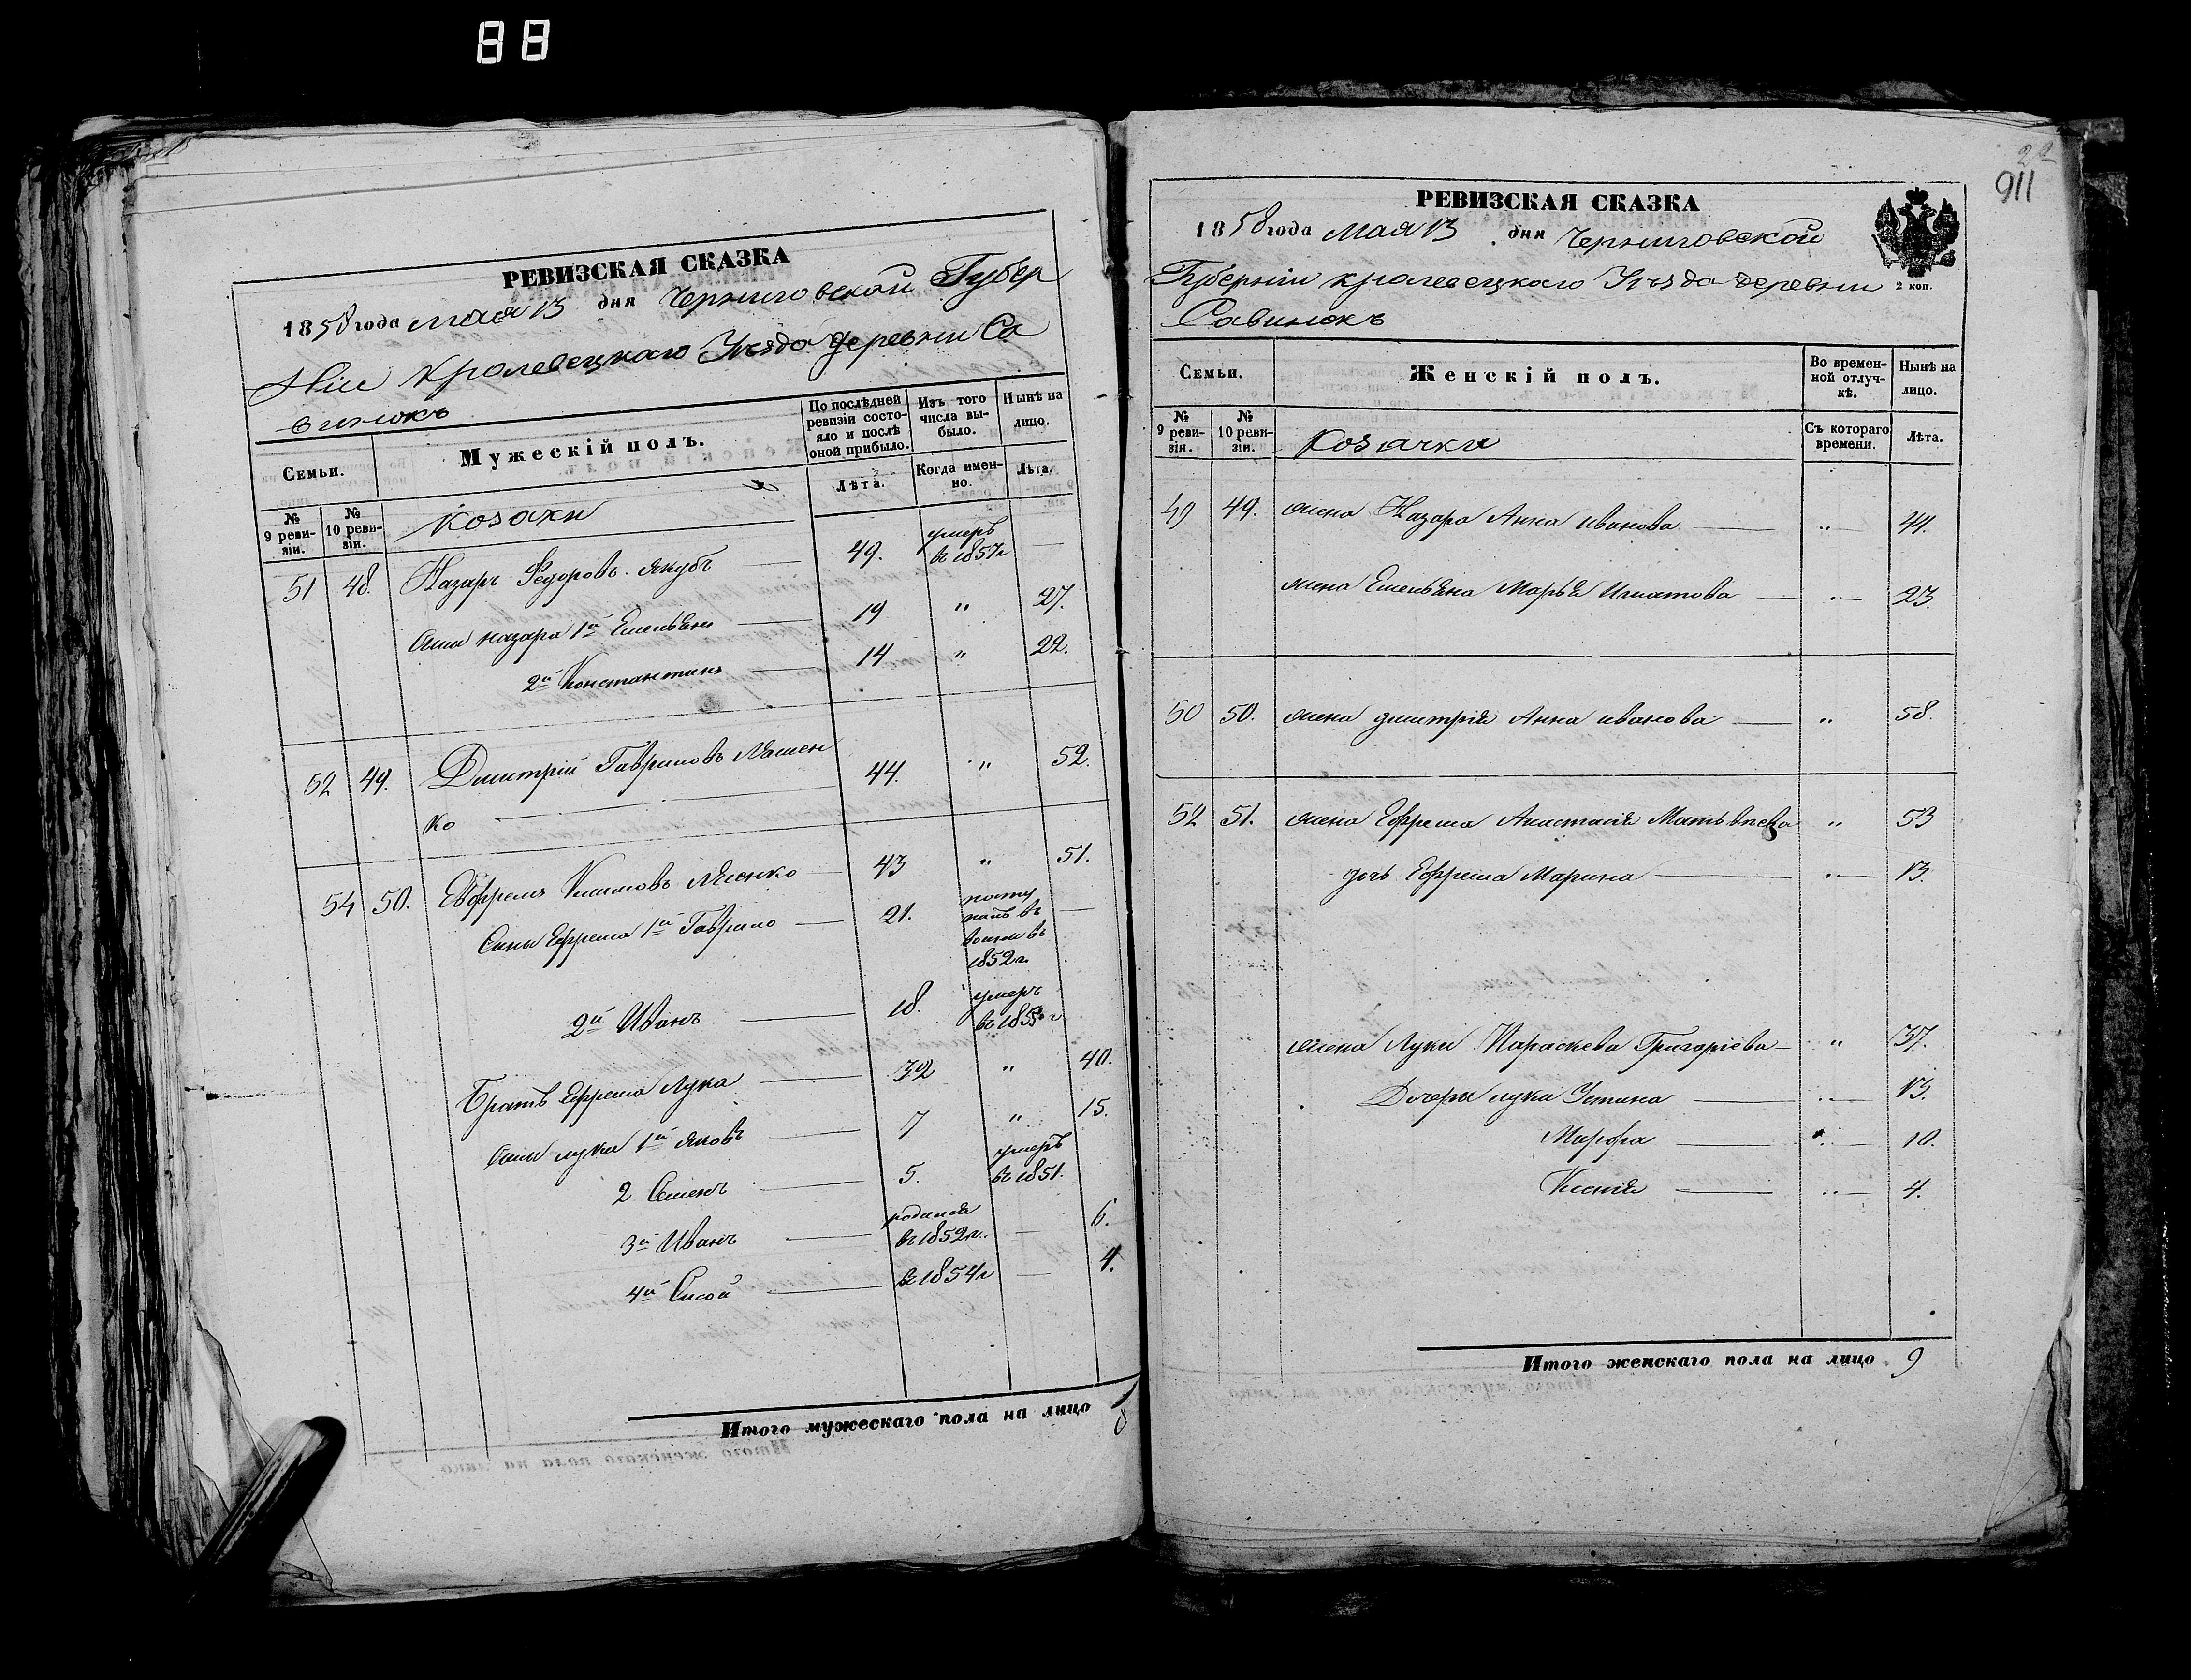 88
РЕВИЗСКАЯ СКАЗКА
1858 года мая 13 дня Черниговской Губер
ніи Кролевецкаго Уѣзда деревни Са
винокъ
Семьи.
Мужескій полъ.
По послѣдней ревизіи состояло и послѣ оной прибыло.
Изъ того числа выбыло.
Нынѣ на лицо.
№ 9 ревизіи.
№ 10 ревизіи.
козаки
Лѣта.
Когда именно.
Лѣта.
51 48. Назаръ Федоровъ Якубъ — 49. умеръ въ 1857г —
Сыны назара 1й Емельянъ — 19 " 27.
2й Константинъ — 14 " 22.
52 49. Дмитрій Гавриловъ Ляшен
ко — 44. " 52.
54 50. Ефремъ Климовъ — 43 " 51.
Сыны Ефрема 1й Гаврило — 21. въ 1852г. —
2й Иванъ — 18. умеръ
Братъ Ефрема Лука — 32 " 40.
Сыны луки 1й Яковъ — 7 " 15.
2 Семенъ — 5. умеръ въ 1851.
3й Иванъ — родился въ 1852г. — 6.
4й Сисой — въ 1854г — 4.
Итого мужескаго пола на лицо 8
911
РЕВИЗСКАЯ СКАЗКА
1858 года мая 13 дня Черниговской
Губерніи кролевецкаго Уѣзда деревни
Савинокъ
2 коп.
Семьи.
Женскій полъ.
Во временной отлучкѣ.
Нынѣ на лицо.
№ 9 ревизіи.
№ 10 ревизіи.
козачки
Съ котораго времени.
Лѣта.
49 49. жена Назара Анна иванова — " 44.
жена Емельяна Марья Игнатова — " — 23.
50 50. жена дмитрія Анна иванова — " 58.
52 51. жена Ефрема Анастасія Матвѣева " 53
дочь Ефрема Марина — " — 13.
жена Луки Параскева Григоріева — " 37.
Дочеры луки Устина — " — 13.
Марфа — " — 10.
Ксенія — " — 4.
Итого женскаго пола на лицо 9